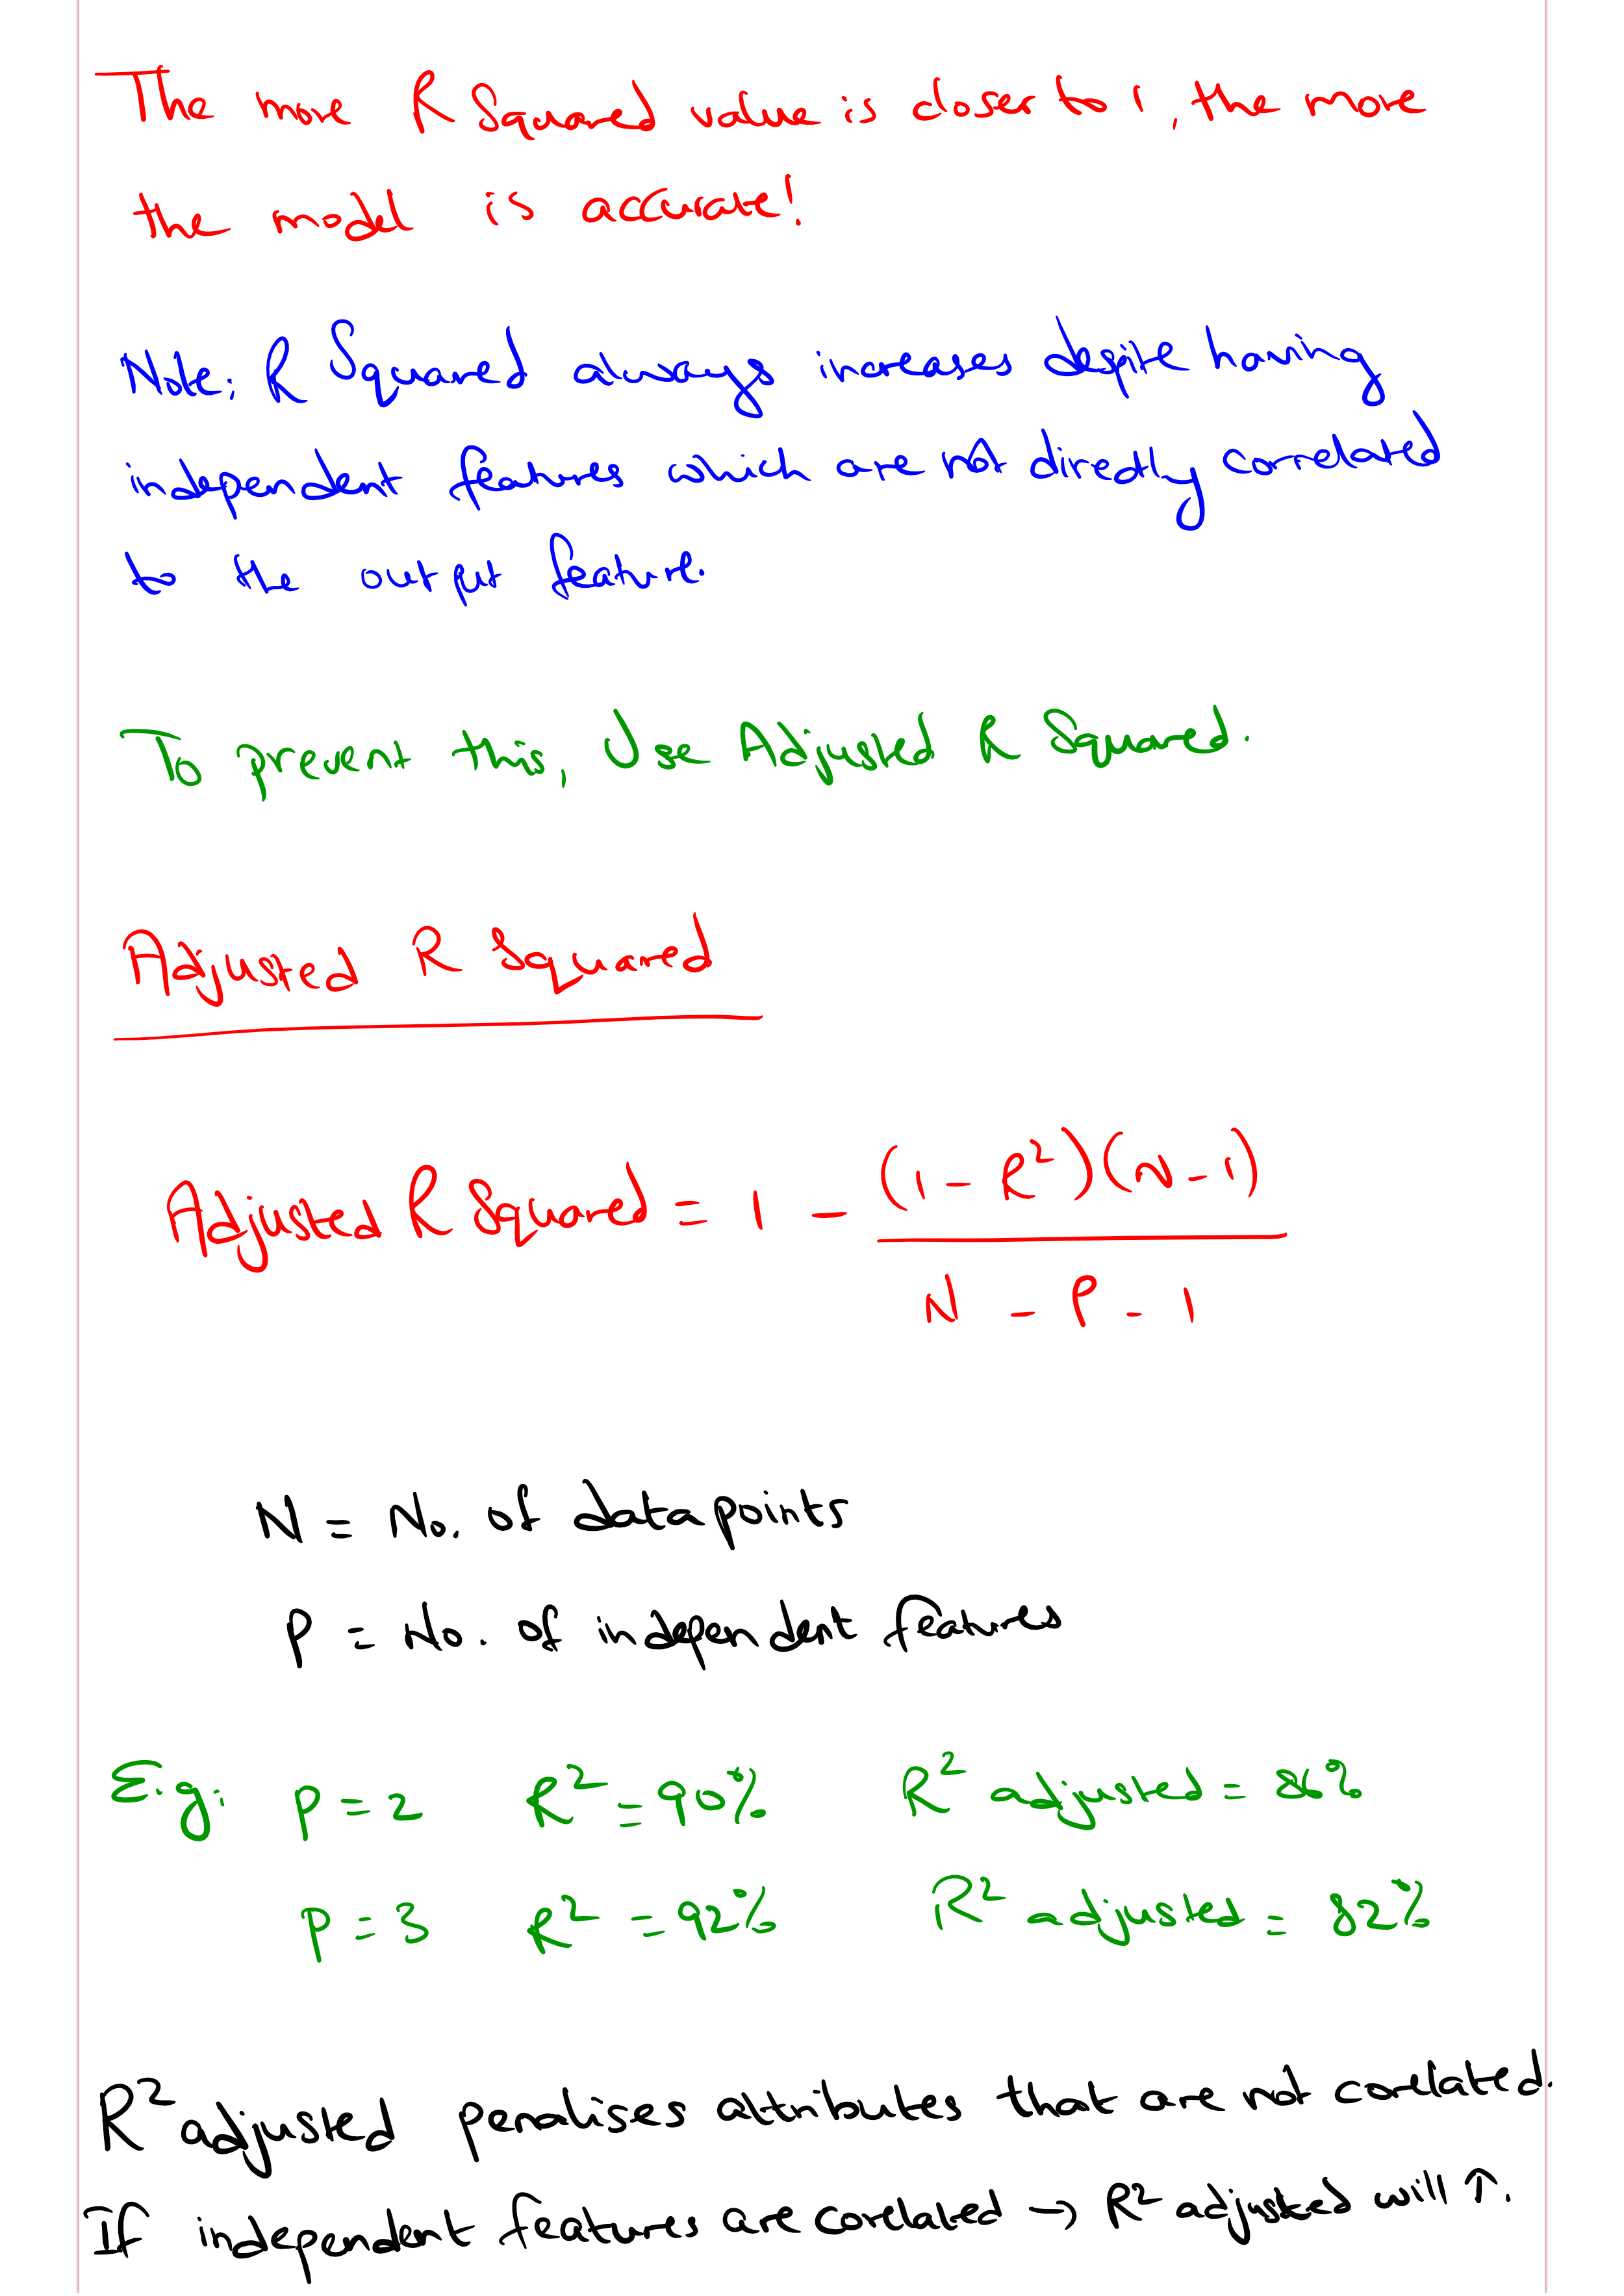 The more R Squared value is closer to 1, the more
the model is accurate!
Note: R Squared always increases despite having
independent features which are not directly correlated
to the output feature.
To prevent this, Use Adjusted R Squared.
Adjusted R Squared
Adjusted R Squared = 1 - (1 - R²)(N - 1)
N - P - 1
N = No. of datapoints
P = No. of independent features
E.g: P = 2 R² = 90% R² adjusted = 86%
P = 3 R² = 92% R² adjusted = 82%
R² adjusted penalises attributes that are not corelated.
If independent features are corelated → R² adjusted will ↑.